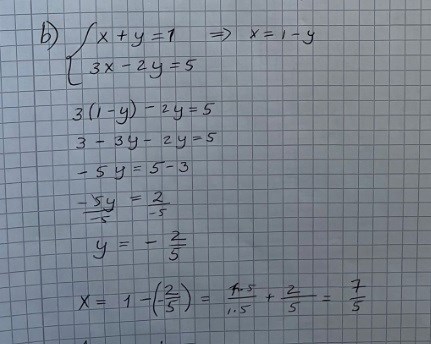 b) { x + y = 1 ⇒ x = 1 - y
3x - 2y = 5
3(1-y) - 2y = 5
3 - 3y - 2y = 5
-5y = 5-3
-5y/-5 = 2/-5
y = - 2/5
x = 1 - (-2/5) = 1·5/1·5 + 2/5 = 7/5